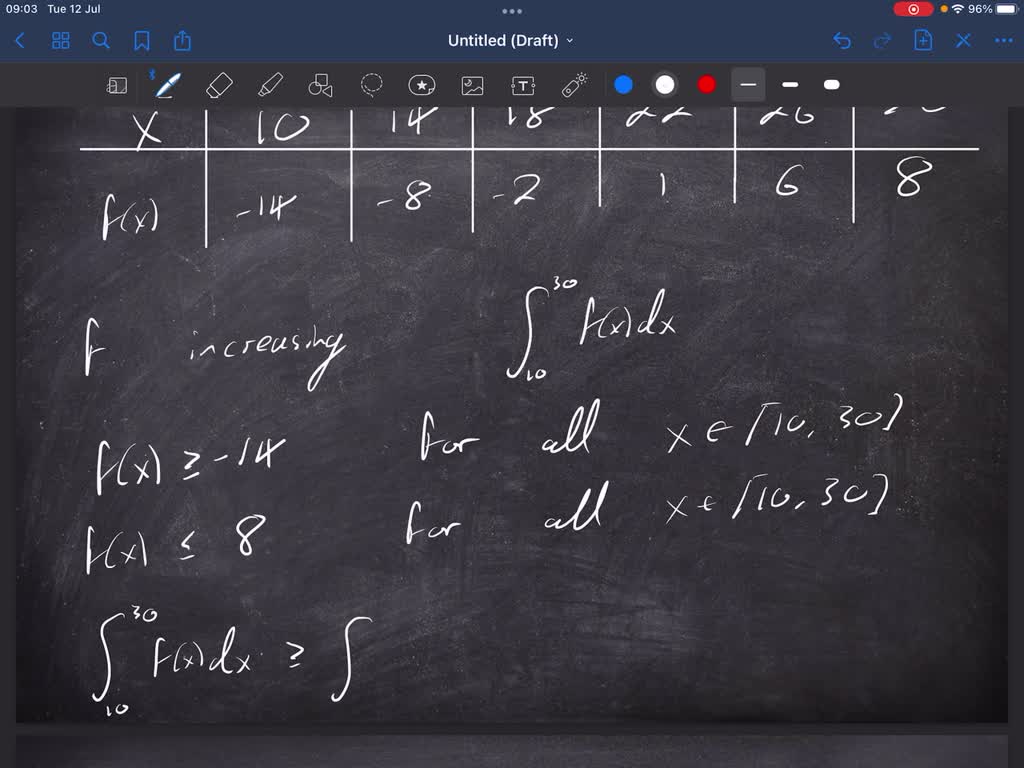 09:03 Tue 12 Jul 96%
Untitled (Draft)
x 10 14 18 22 26
f(x) -14 -8 -2 1 6 8
f increasing ∫₁₀³⁰ f(x)dx
f(x) ≥ -14 for all x ∈ [10, 30]
f(x) ≤ 8 for all x ∈ [10, 30]
∫₁₀³⁰ f(x)dx ≥ ∫